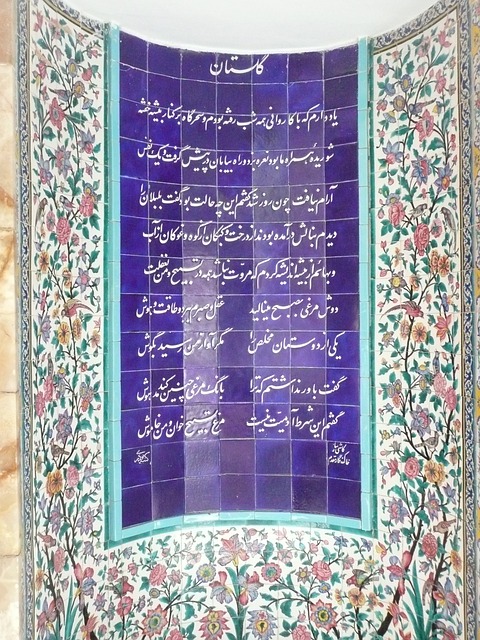 گلستان
یاد دارم که با کاروانی همه شب رفته بودم و سحرگاه بر کنار بیشه خفته
شوریده‌ای همراه ما بود نعره بزد و راه بیابان در پیش گرفت و یک نفس
آرام نیافت چون روز شد گفتم این چه حالت بود گفت بلبلان را
دیدم بنالش درآمده بودند از درخت و کبکان از کوه و غوکان از آب
و بهائم از بیشه اندیشه کردم که مروت نباشد همه در تسبیح و من بغفلت
دوش مرغی بصبح مینالید عقل و صبرم ببرد و طاقت و هوش
یکی از دوستان مخلص را مگر آواز من رسید بگوش
گفت باور نداشتم که ترا بانگ مرغی چنین کند مدهوش
گفتم این شرط آدمیت نیست مرغ تسبیح خوان و من خاموش